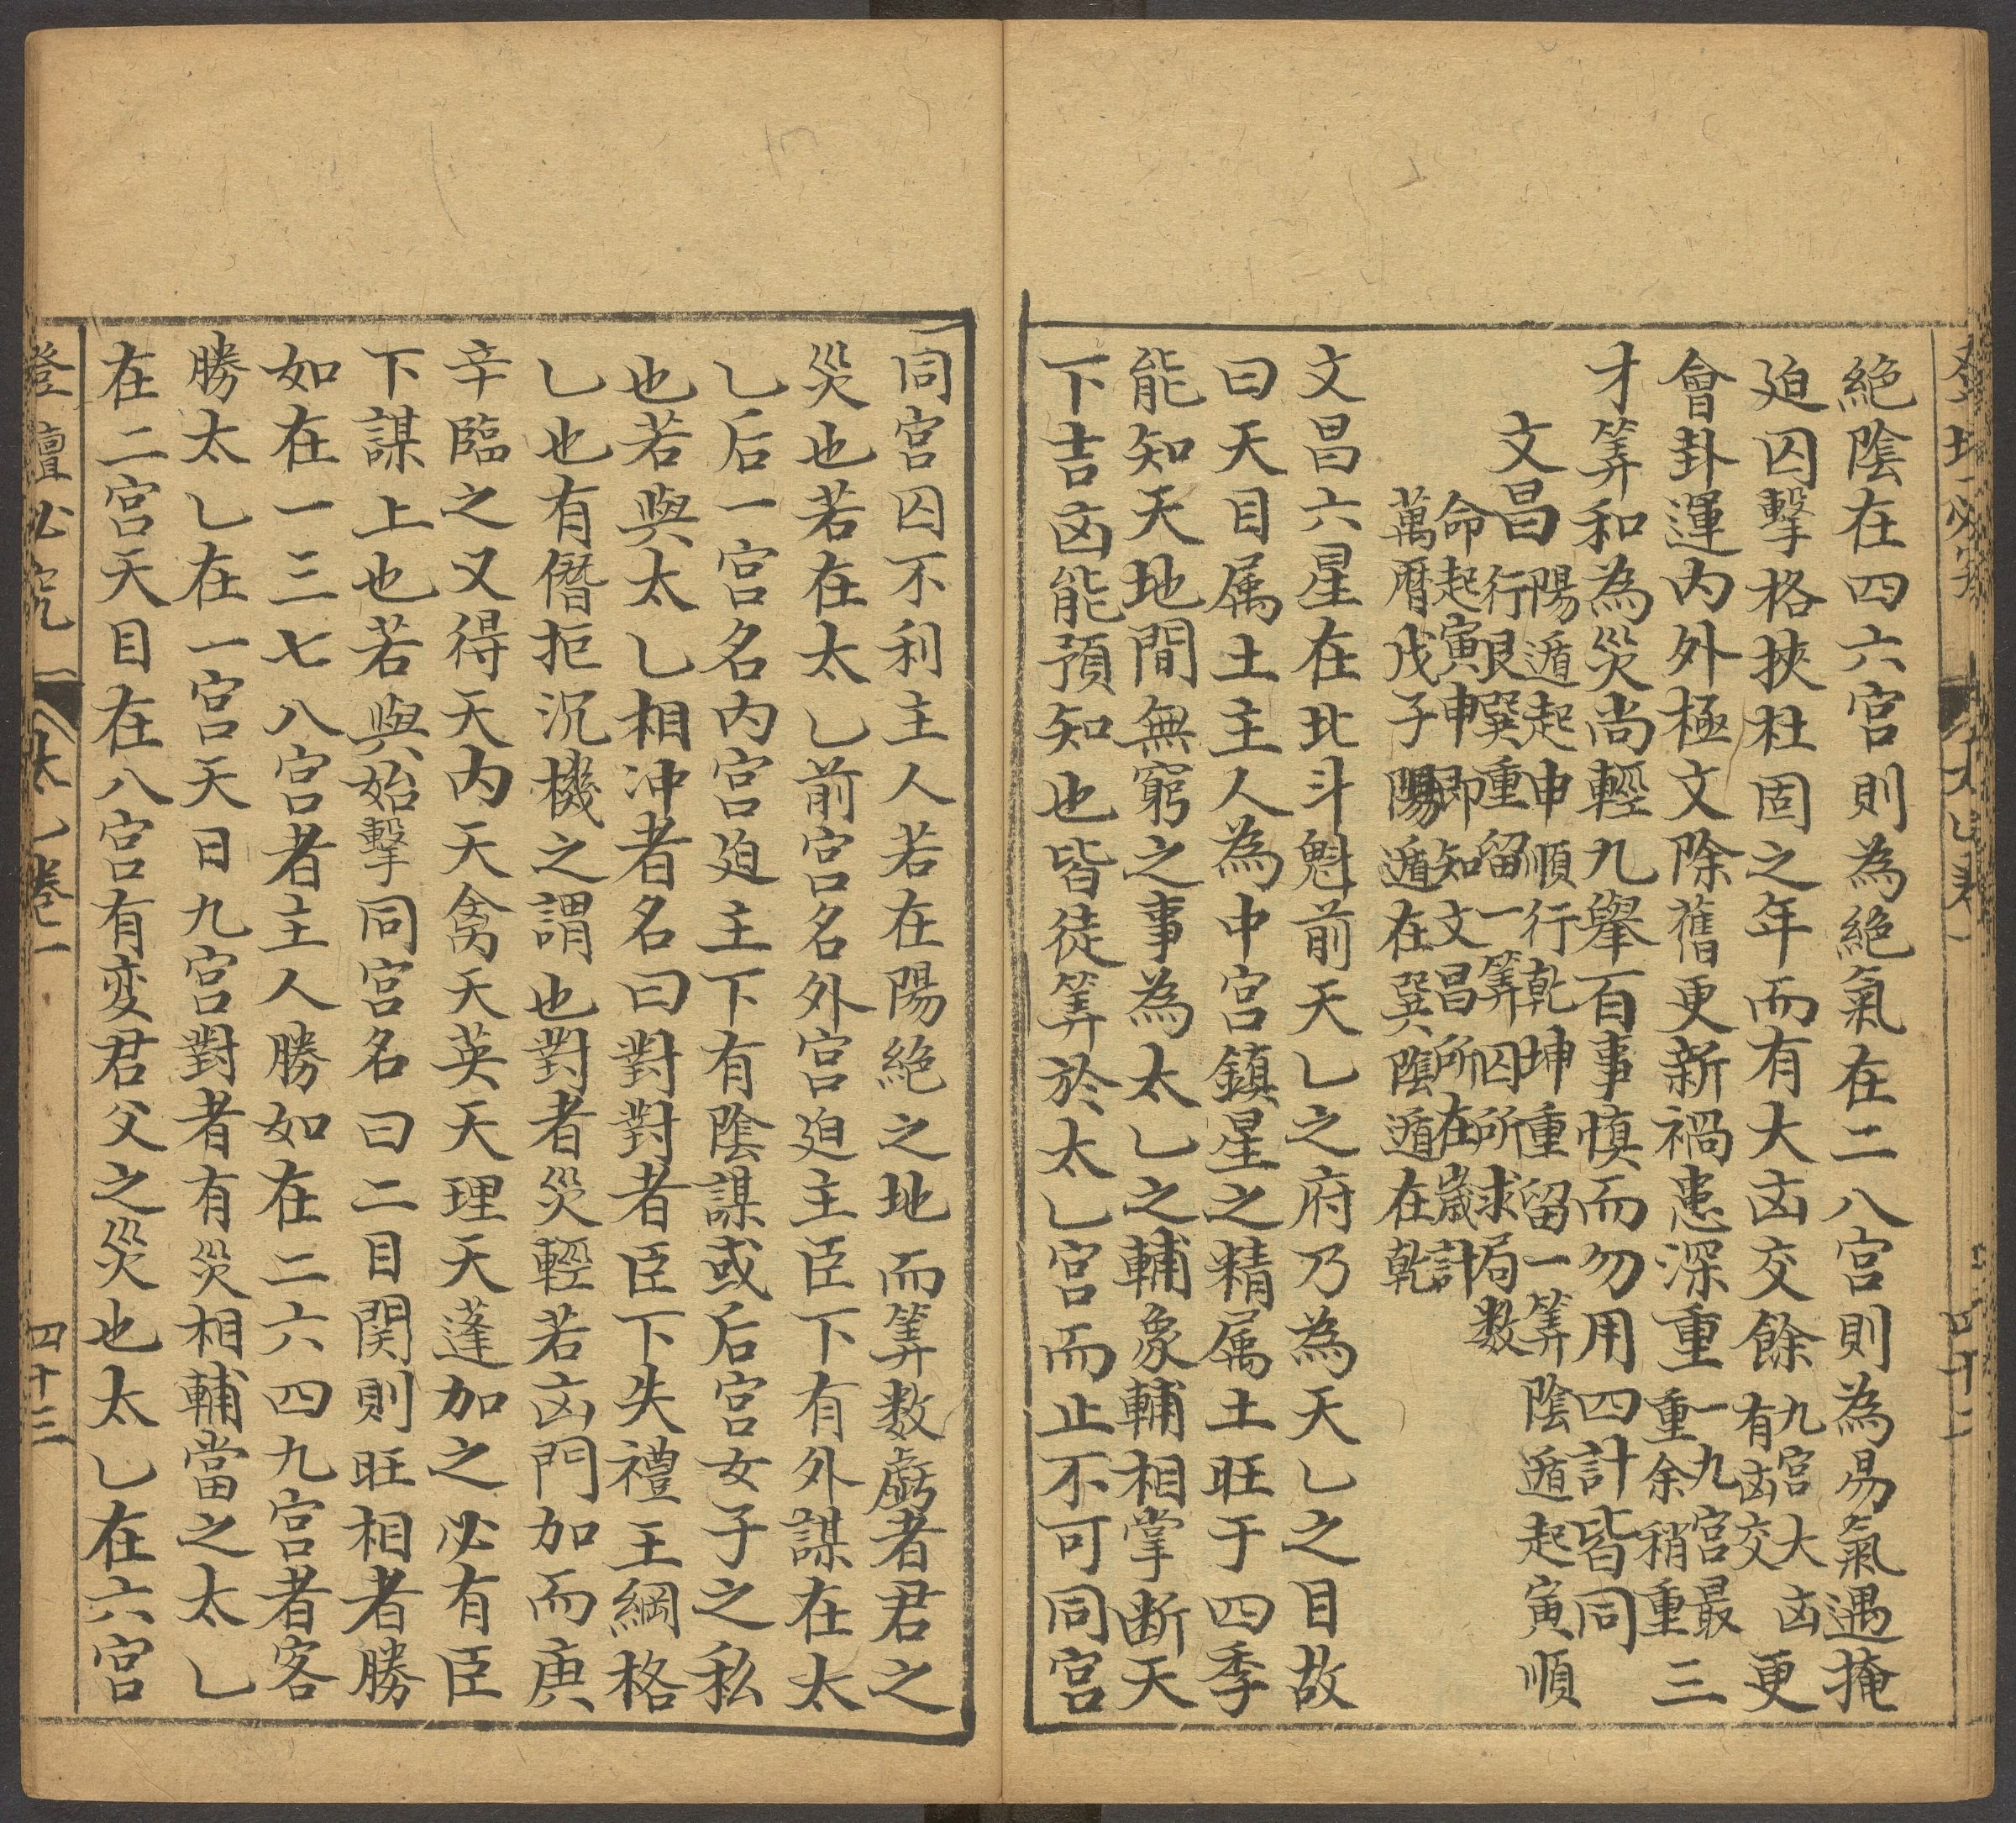 絶陰在四六宫則為絶氣在二八宫則為易氣遇掩
廹囚擊格挾杜固之年而有大㐫交餘九宫大㐫有㐫交更
會卦運内外極文除舊更新禍患深重一九宫最重余稍重三
才筭和為災尚輕九舉百事慎而勿用四計皆同
文昌陽遁起申順行乾坤重留一筭陰遁起寅順
行艮巽重留一筭囚所求局数
命起寅申即知文昌所在歲計
萬暦戊子陽遁在巽陰遁在乾
文昌六星在北斗魁前天乚之府乃為天乚之目故
曰天目属土主人為中宫鎮星之精属土旺于四季
能知天地間無窮之事為太乚之輔象輔相掌断天
下吉㐫能預知也皆徒筭於太乚宫而止不可同宫
同宫囚不利主人若在陽絶之地而筭数虧者君之
災也若在太乚前宫名外宫廹主臣下有外謀在太
乚后一宫名内宫廹主下有陰謀或后宫女子之私
也若與太乚相冲者名曰對對者臣下失禮王綱格
乚也有僭拒沉機之謂也對者災輕若㐫門加而庚
辛臨之又得天内天禽天英天理天蓬加之必有臣
下謀上也若與始擊同宫名曰二目関則旺相者勝
如在一三七八宫者主人勝如在二六四九宫者客
勝太乚在一宫天目九宫對者有災相輔當之太乚
在二宫天目在八宫有変君父之災也太乚在六宫
登壇必究 太乚卷一 四十三